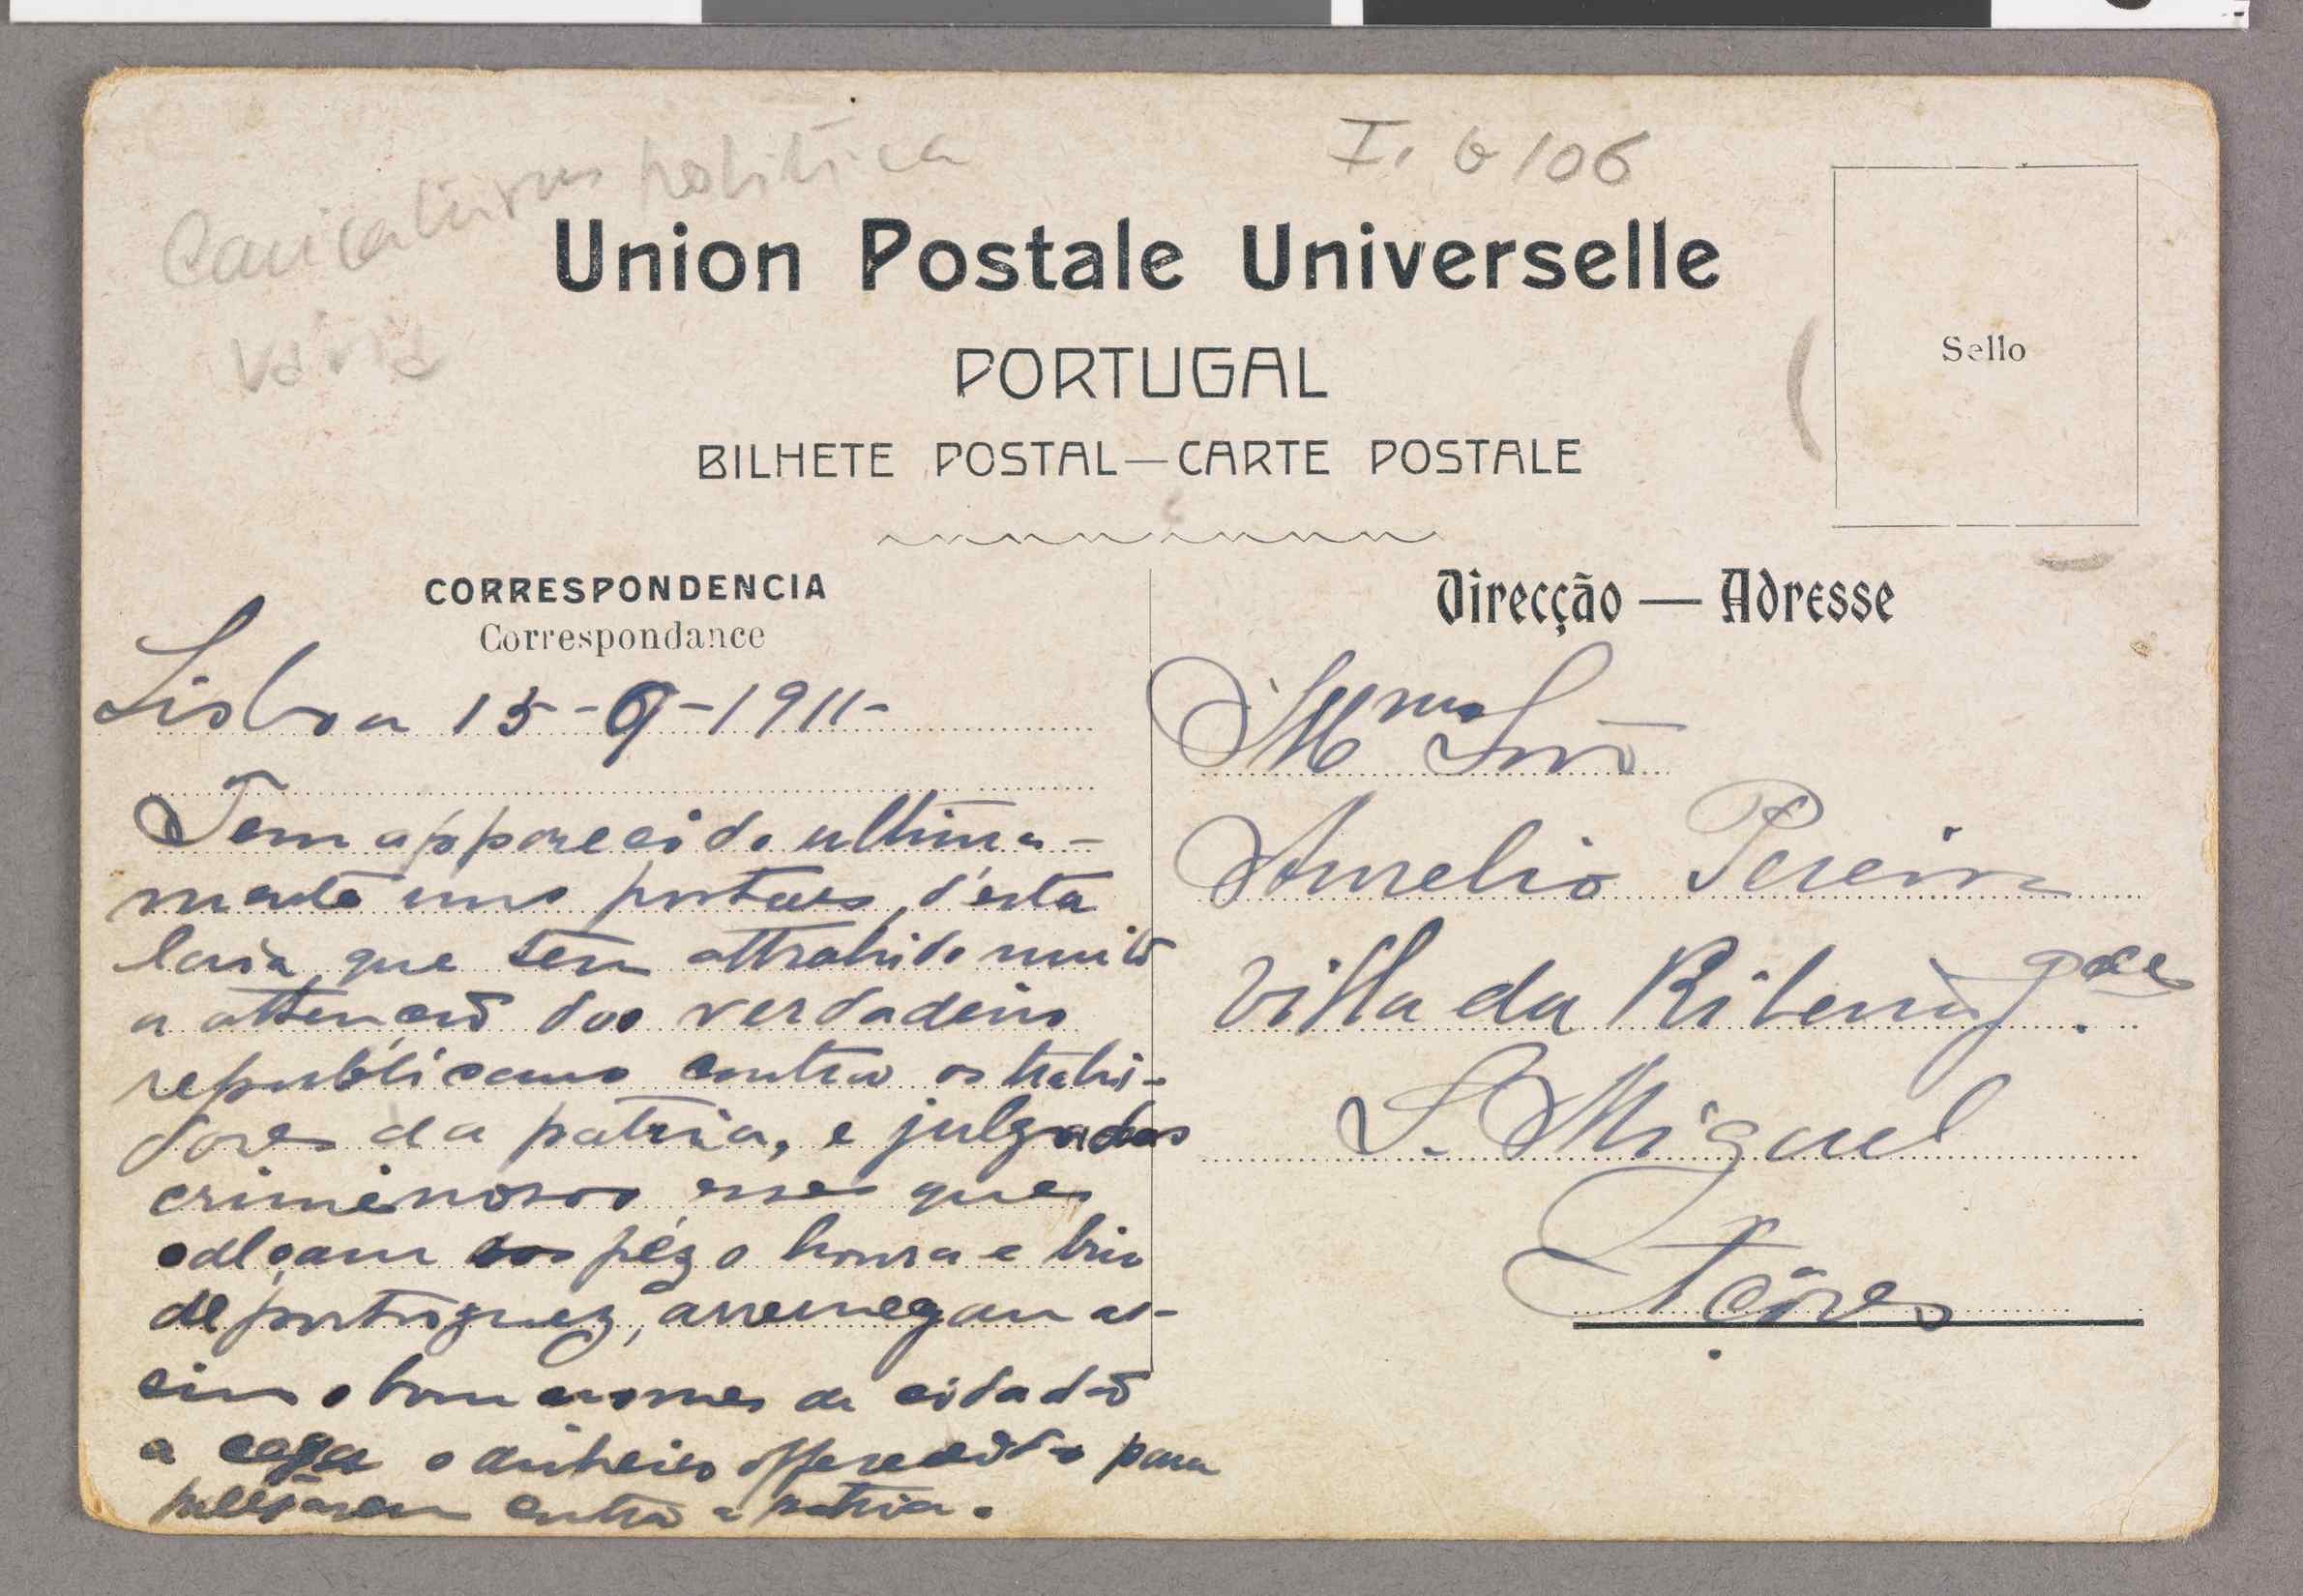 Caricaturas politica
varia
I. 6 / 06
Union Postale Universelle
PORTUGAL
BILHETE POSTAL—CARTE POSTALE
Sello
CORRESPONDENCIA
Correspondance
Direcção — Adresse
Lisboa 15-9-1911-
Tem apparecido ultima-
mente uns postaes d'esta
laia, que tem attrahido muito
a attenção dos verdadeiros
republicanos contra os trahi-
dores da patria, e julgados
criminosos esses que
calçam aos péz a honra e brio
de portuguez, arrenegam as-
sim o bom nome de cidadão
a o dinheiro offerecido para
contra a patria.
Illmo Snr
Aurelio Pereira
Villa da Ribeira Gde
S. Miguel
Açôres